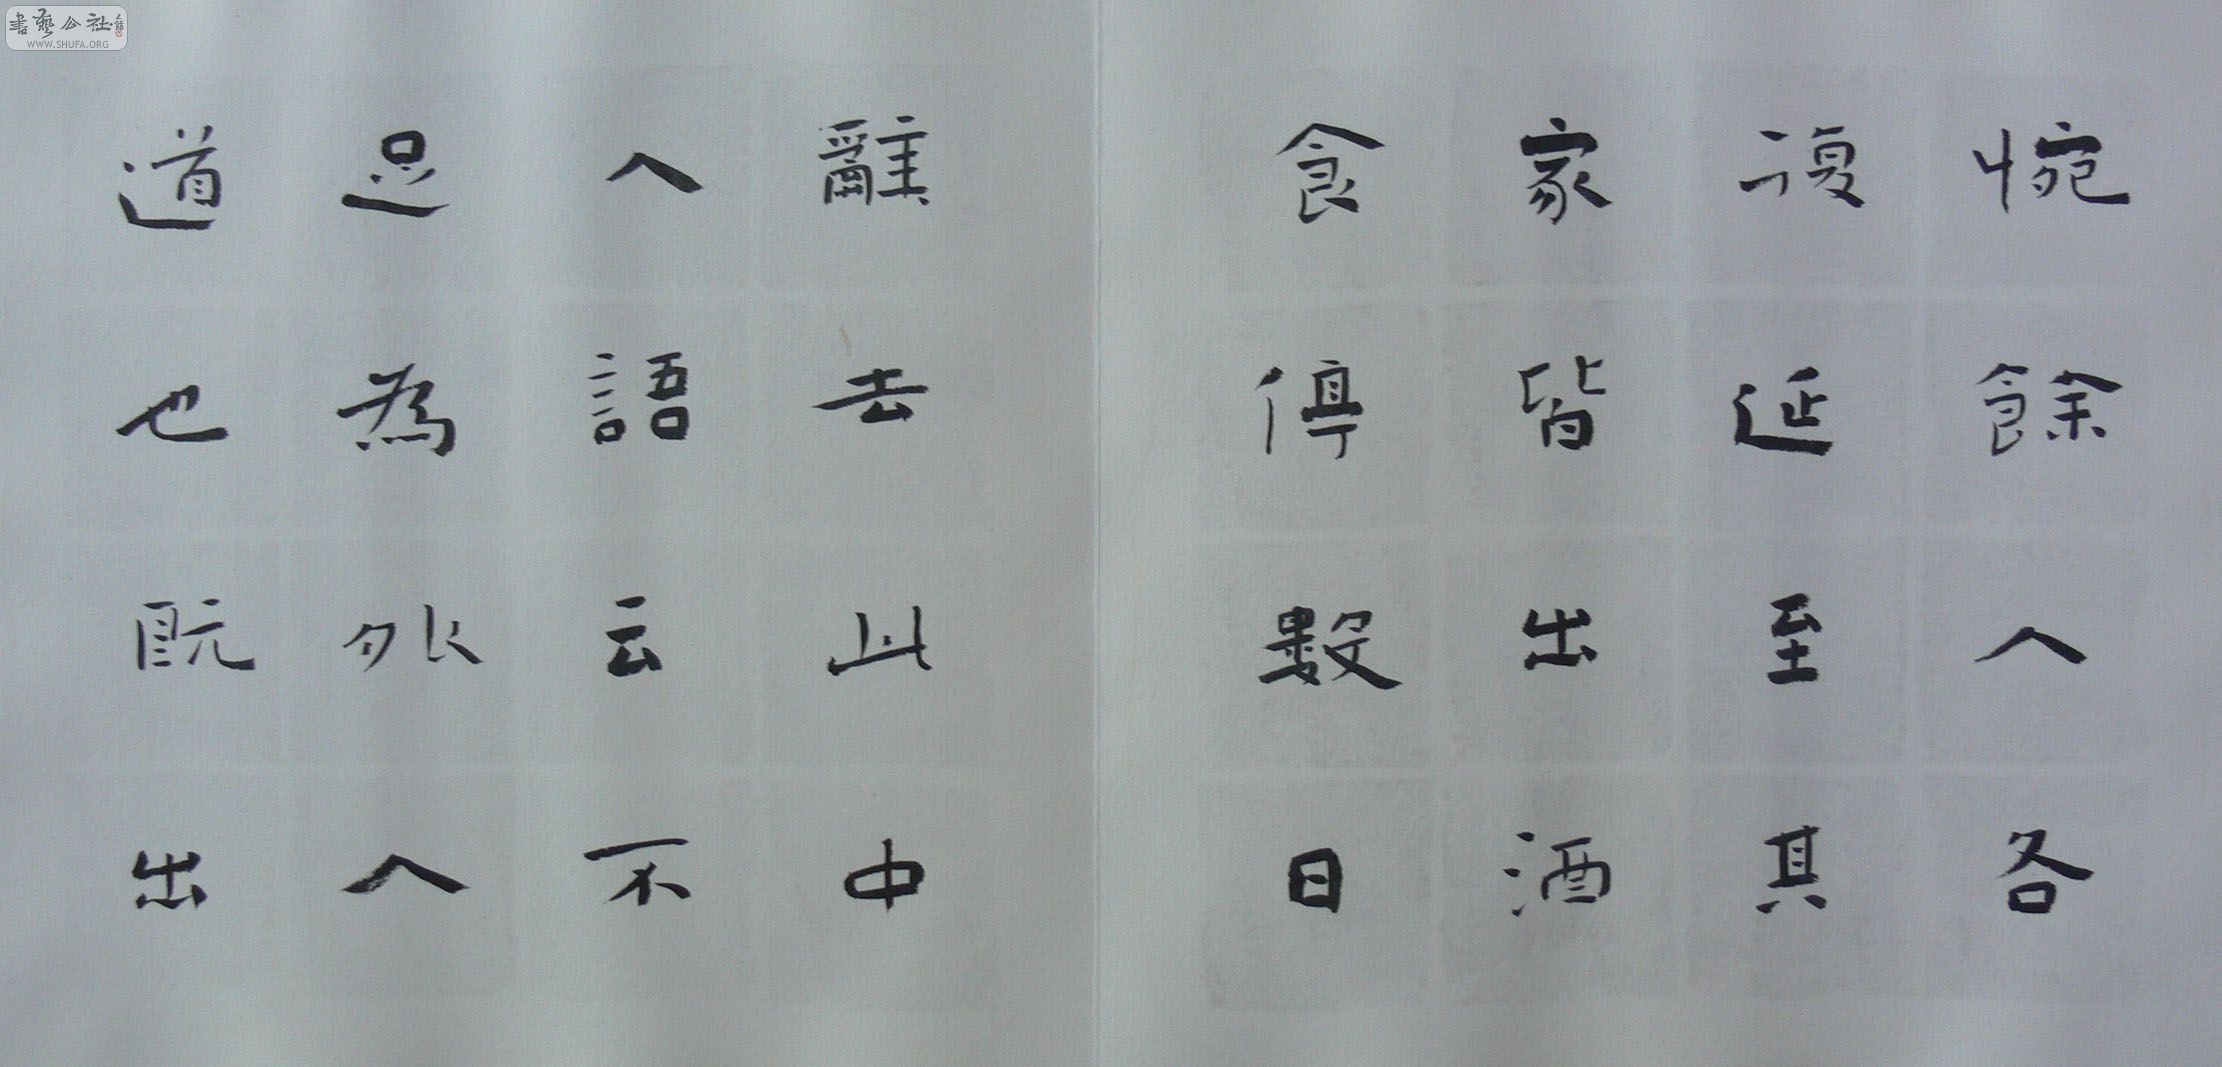 惋餘人各
復延至其
家皆出酒
食停數日
辭去此中
人語云不
足為外人
道也既出
書藝公社
WWW.SHUFA.ORG